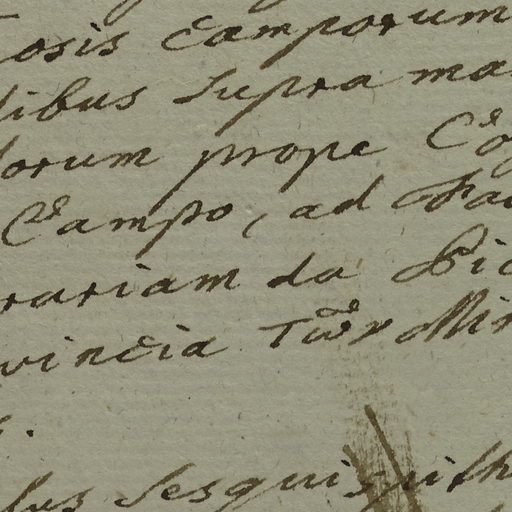 osis Camporum
libus supra mar
lorum prope Co
Campo, ad Fa
rariam da Pic
vincia
lus sesqui